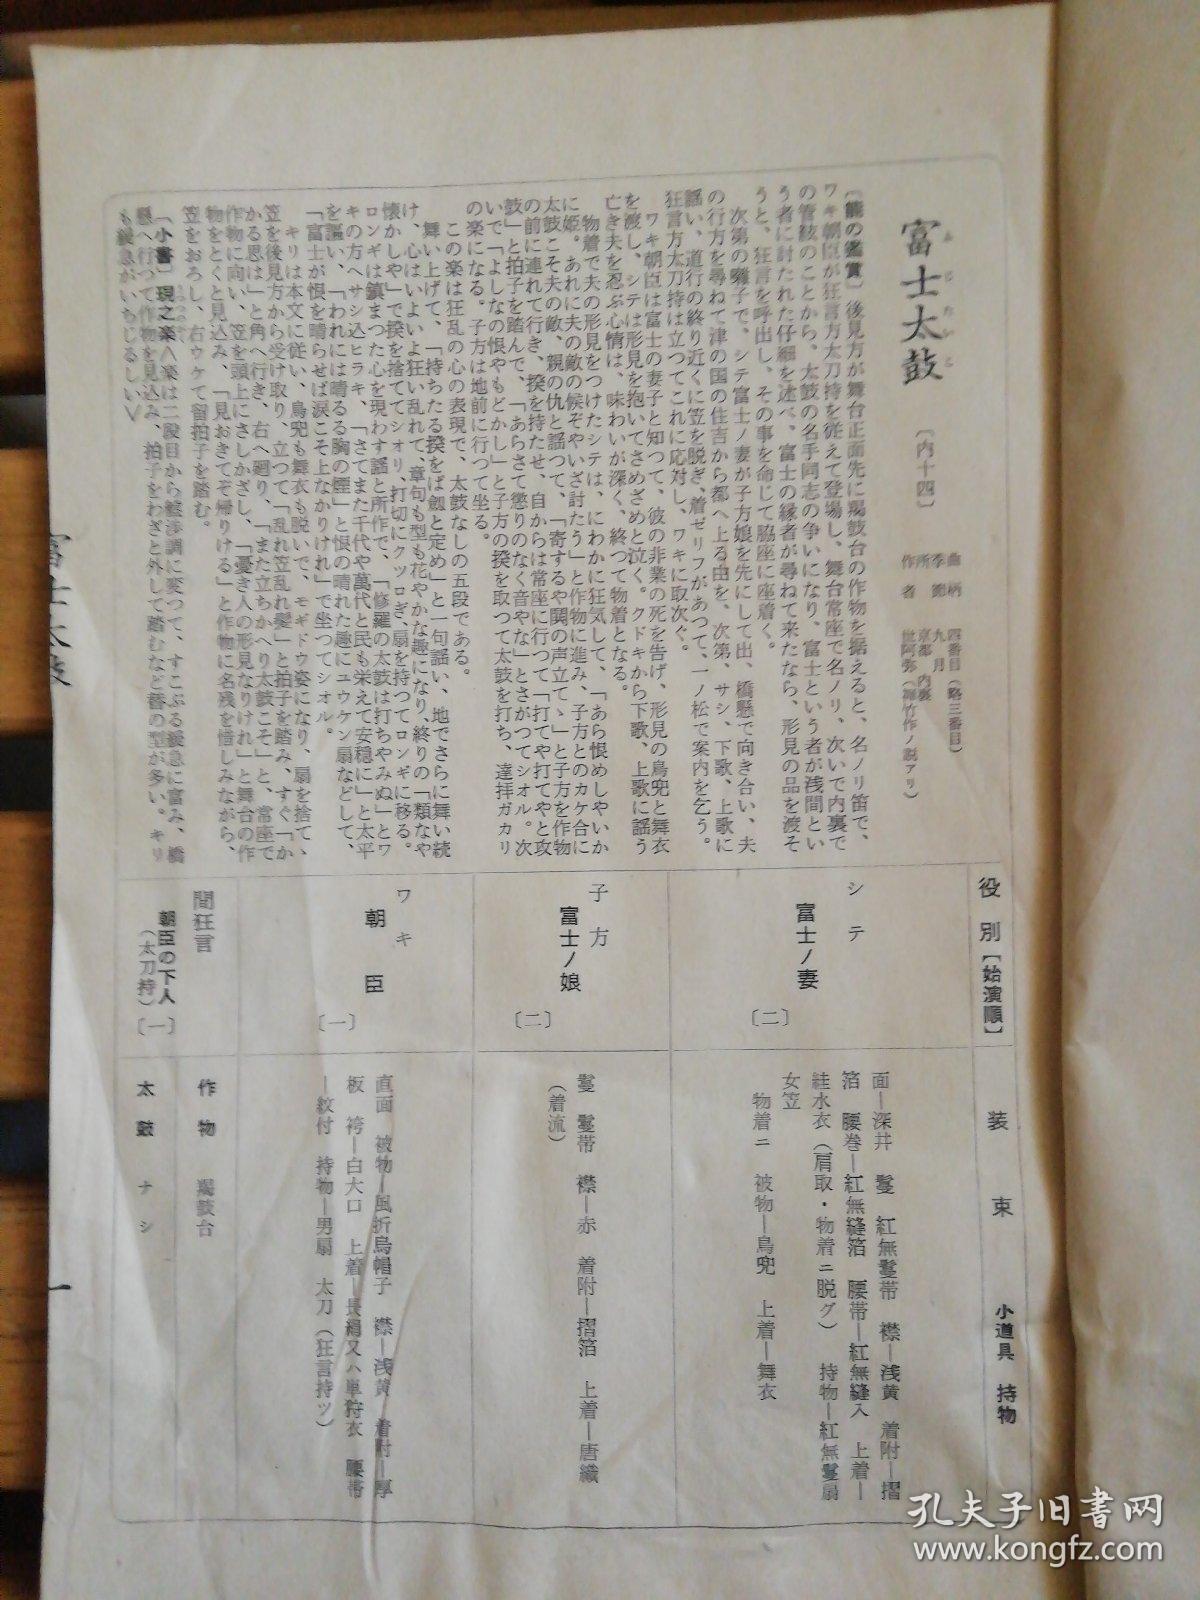 富士太鼓
ふじたいこ
〔内十四〕
曲柄　四番目（略三番目）
季節　九月
所　京都　内裏
作者　世阿弥（禅竹作ノ説アリ）
〔能の鑑賞〕　後見方が舞台正面先に羯鼓台の作物を据えると、名ノリ笛で、
ワキ朝臣が狂言方太刀持を従えて登場し、舞台常座で名ノリ、次いで内裏で
の管絃のことから、太鼓の名手同志の争いになり、富士という者が浅間とい
う者に討たれた仔細を述べ、富士の縁者が尋ねて来たなら、形見の品を渡そ
うと、狂言を呼出し、その事を命じて脇座に座着く。
次第の囃子で、シテ富士ノ妻が子方娘を先にして出、橋懸で向き合い、夫
の行方を尋ねて津の国の住吉から都へ上る由を、次第、サシ、下歌、上歌に
謡い、道行の終り近くに笠を脱ぎ、着ゼリフがあつて、一ノ松で案内を乞う。
狂言方太刀持は立つてこれに応対し、ワキに取次ぐ。
ワキ朝臣は富士の妻子と知つて、彼の非業の死を告げ、形見の鳥兜と舞衣
を渡し、シテは形見を抱いてさめざめと泣く。クドキから下歌、上歌に謡う
亡き夫を忍ぶ心情は、味わいが深く、終つて物着となる。
物着で夫の形見をつけたシテは、にわかに狂気して、「あら恨めしやいか
に姫。あれに夫の敵の候ぞやいざ討たう」と作物に進み、子方とのカケ合に
太鼓こそ夫の敵、親の仇と謡つて、「寄するや鬨の声立てゝ」と子方を作物
の前に連れて行き、撥を持たせ、自からは常座に行つて「打てや打てやと攻
鼓」と拍子を踏んで、「あらさて懲りのなく音やな」とさがつてシオル。次
いで「よしなの恨やもどかし」と子方の撥を取つて太鼓を打ち、達拝ガカリ
の楽になる。子方は地前に行つて坐る。
この楽は狂乱の心の表現で、太鼓なしの五段である。
舞い上げて、「持ちたる撥をば剣と定め」と一句謡い、地でさらに舞い続
け、心はいよいよ狂い乱れて、章句も型も花やかな趣になり、終りの「類なや
懐かしや」で撥を捨ててシオリ、打切にクツロギ、扇を持つてロンギに移る。
ロンギは鎮まつた心を現わす謡と所作で、「修羅の太鼓は打ちやみぬ」とワ
キの方へサシ込ヒラキ、「さてまた千代や萬代と民も栄えて安穏に」と太平
を謳い、「われには晴るる胸の煙」と恨の晴れた趣にユウケン扇などして、
「富士が恨を晴らせば涙こそ上なかりけれ」で坐つてシオル。
キリは本文に従い、鳥兜も舞衣も脱いで、モギドウ姿になり、扇を捨てゝ
笠を後見方から受け取り、立つて「乱れ笠乱れ髪」と拍子を踏み、すぐ「か
かる思は」と角へ行き、右へ廻り、「また立ちかへり太鼓こそ」と、常座で
作物に向い、笠を頭上にさしかざし、「憂き人の形見なりけれ」と舞台の作
物をとくと見込み、「見おきてぞ帰りける」と作物に名残を惜しみながら、
笠をおろし、右ウケて留拍子を踏む。
〔小書〕現之楽＜楽は二段目から盤渉調に変つて、すこぶる緩急に富み、橋
懸へ行つて作物を見込み、拍子をわざと外して踏むなど替の型が多い。キリ
も緩急がいちじるしい＞
役別〔始演順〕
装束　小道具　持物
シテ　富士ノ妻　〔二〕
面―深井　鬘　紅無鬘帯　襟―浅黄　着附―摺
箔　腰巻―紅無縫箔　腰帯―紅無縫入　上着―
絓水衣（肩取・物着ニ脱グ）　持物―紅無鬘扇
女笠
物着ニ　被物―鳥兜　上着―舞衣
子方　富士ノ娘　〔二〕
鬘　鬘帯　襟―赤　着附―摺箔　上着―唐織
（着流）
ワキ　朝臣　〔一〕
直面　被物―風折烏帽子　襟―浅黄　着附―厚
板　袴―白大口　上着―長絹又ハ単狩衣　腰帯
―紋付　持物―男扇　太刀（狂言持ツ）
間狂言　朝臣の下人
（太刀持）〔一〕
作物　羯鼓台
太鼓ナシ
富士太鼓
一
孔夫子旧书网
www.kongfz.com